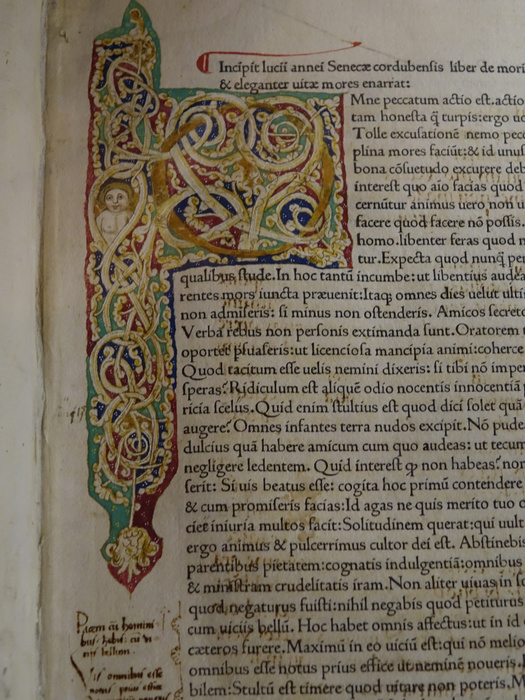 Incipit lucii annei Senecæ cordubensis liber de mori
& eleganter uitæ mores enarrat:
Mne peccatum actio est.actio
tam honesta q̃ turpis:ergo uo
Tolle excusationẽ nemo pecc
plina mores faciũt:& id unus
bona cõsuetudo excutere deb
interest quo aio facias quod
cernũtur animus uero non u
facere quod facere nõ possis.
homo.libenter feras quod n
tur.Expecta quod nunq̃ per
qualibus stude.In hoc tantũ incumbe:ut libentius audea
rentes mors iuncta præuenit:Itaq; omnes dies uelut ultim
non admiseris: si minus non ostenderis. Amicos secreto
Verba rebus non personis extimanda sunt.Oratorem t
oportet psuaseris:ut licenciosa mancipia animi:coherce
Quod tacitum esse uelis nemini dixeris: si tibi nõ imper
speras?Ridiculum est aliquẽ odio nocentis innocentiã p
ricia scelus.Quid enim stultius est quod dici solet quã
augere?Omnes infantes terra nudos excipit.Nõ pude
dulcius quã habere amicum cum quo audeas: ut tecum
negligere ledentem. Quid interest qp non habeas?non
serit: Si uis beatus esse: cogita hoc primũ contendere
& cum promiseris facias:Id agas ne quis merito tuo o
ciet iniuria multos facit:Solitudinem querat:qui uult
ergo animus & pulcerrimus cultor dei est. Abstinebis
parentibus pietatem:cognatis indulgentiã:omnibus
& ministram crudelitatis iram.Non aliter uiuas in so
quod negaturus fuisti:nihil negabis quod petiturus
cum uiciis bellũ. Hoc habet omnis affectus:ut in id
cæteros furere. Maximũ in eo uiciũ est:qui nõ melio
omnibus esse notus prius effice ut neminẽ noueris.
bilem:Stultũ est timere quod uitare non poteris.M